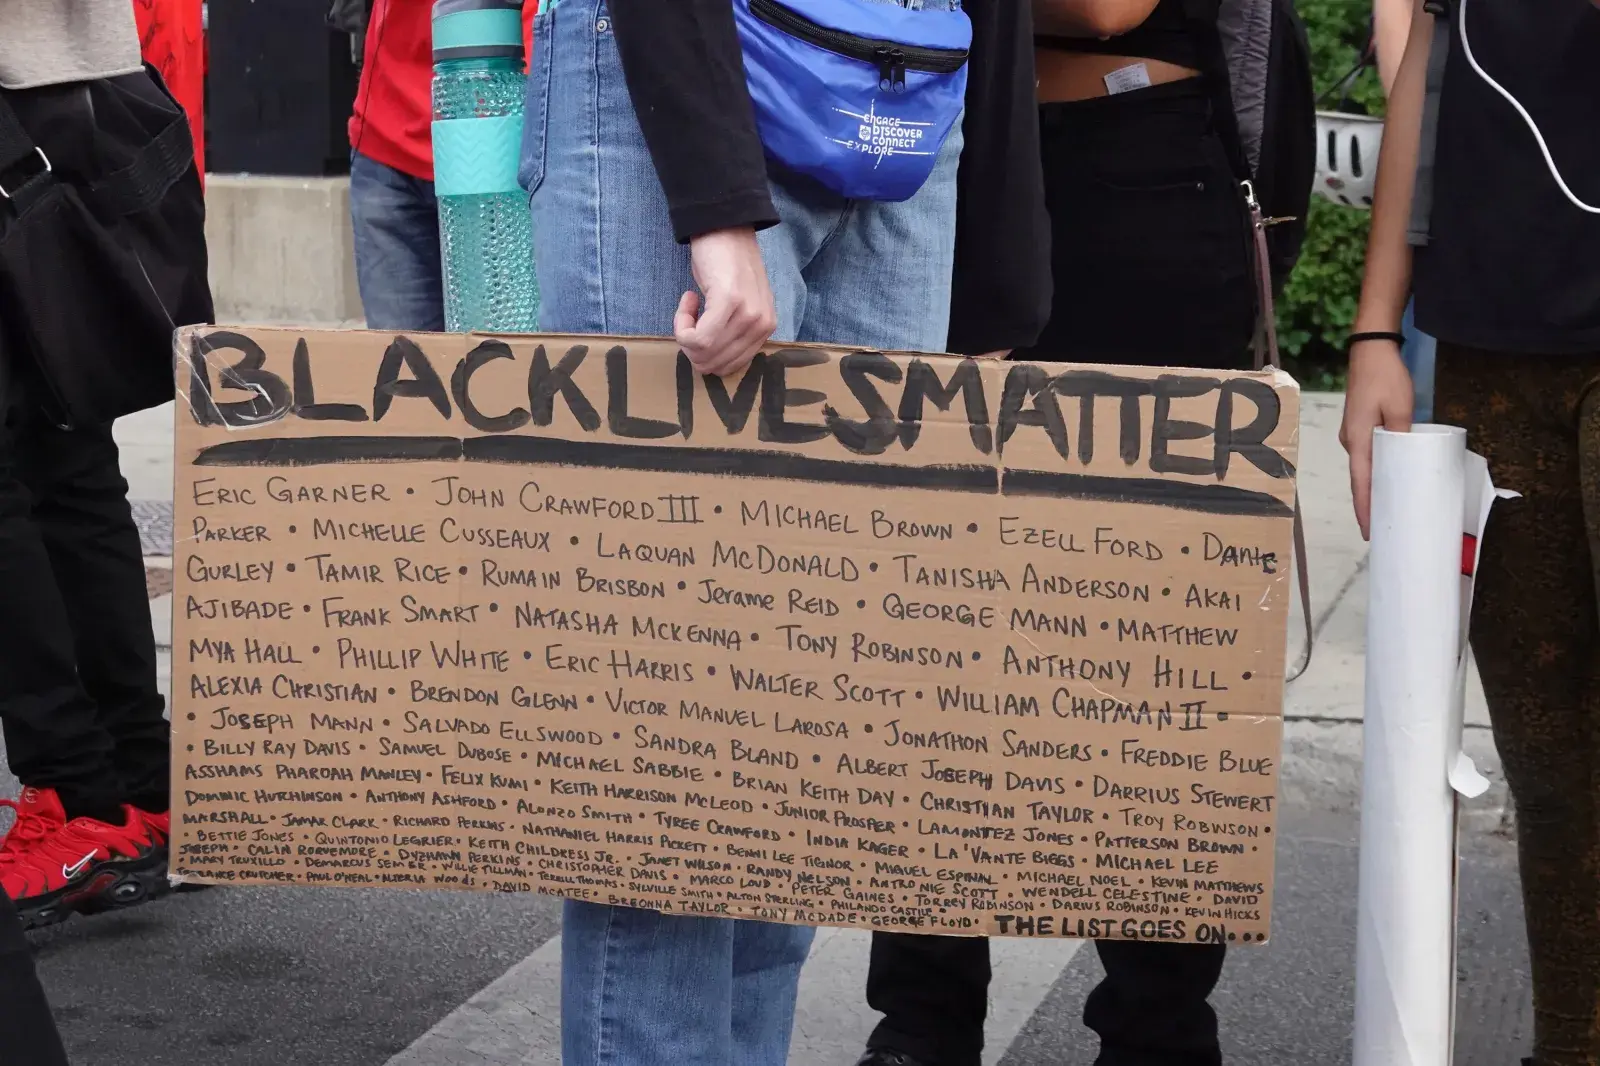 ENGAGE
DISCOVER
CONNECT
EXPLORE
BLACK LIVES MATTER
ERIC GARNER • JOHN CRAWFORD III • MICHAEL BROWN • EZELL FORD • DANTE
PARKER • MICHELLE CUSSEAUX • LAQUAN MCDONALD • TANISHA ANDERSON • AKAI
GURLEY • TAMIR RICE • RUMAIN BRISBON • Jerame REID • GEORGE MANN • MATTHEW
AJIBADE • FRANK SMART • NATASHA MCKENNA • TONY ROBINSON • ANTHONY HILL •
MYA HALL • PHILLIP WHITE • ERIC HARRIS • WALTER SCOTT • WILLIAM CHAPMAN II •
ALEXIA CHRISTIAN • BRENDON GLENN • VICTOR MANUEL LAROSA • JONATHON SANDERS • FREDDIE BLUE
• JOSEPH MANN • SALVADO ELLSWOOD • SANDRA BLAND • ALBERT JOSEPH DAVIS • DARRIUS STEWERT
• BILLY RAY DAVIS • SAMUEL DUBOSE • MICHAEL SABBIE • BRIAN KEITH DAY • CHRISTIAN TAYLOR • TROY ROBINSON •
ASSHAMS PHAROAH MANLEY • FELIX KUMI • KEITH HARRISON MCLEOD • JUNIOR PROSPER • LAMONTEZ JONES • PATTERSON BROWN •
DOMINIC HUTCHINSON • ANTHONY ASHFORD • ALONZO SMITH • TYREE CRAWFORD • INDIA KAGER • LA'VANTE BIGGS • MICHAEL LEE
MARSHALL • JAMAR CLARK • RICHARD PERKINS • NATHANIEL HARRIS PICKETT • BENNI LEE TIGNOR • MIGUEL ESPINAL • MICHAEL NOEL • KEVIN MATTHEWS
• BETTIE JONES • QUINTONIO LEGRIER • KEITH CHILDRESS JR. • JANET WILSON • RANDY NELSON • ANTRONIE SCOTT • WENDELL CELESTINE • DAVID
JOSEPH • CALIN ROQUEMORE • DYZHAWN PERKINS • CHRISTOPHER DAVIS • MARCO LOUD • PETER GAINES • TORREY ROBINSON • DARIUS ROBINSON • KEVIN HICKS
• MARY TRUXILLO • DEMARCUS SEMER • WILLIE TILLMAN • TERRILL THOMAS • SYLVILLE SMITH • ALTON STERLING • PHILANDO CASTILE •
TERRANCE CRUTCHER • PAUL O'NEAL • ALTERIA WOODS • DAVID MCATEE • BREONNA TAYLOR • TONY MCDADE • GEORGE FLOYD • THE LIST GOES ON...